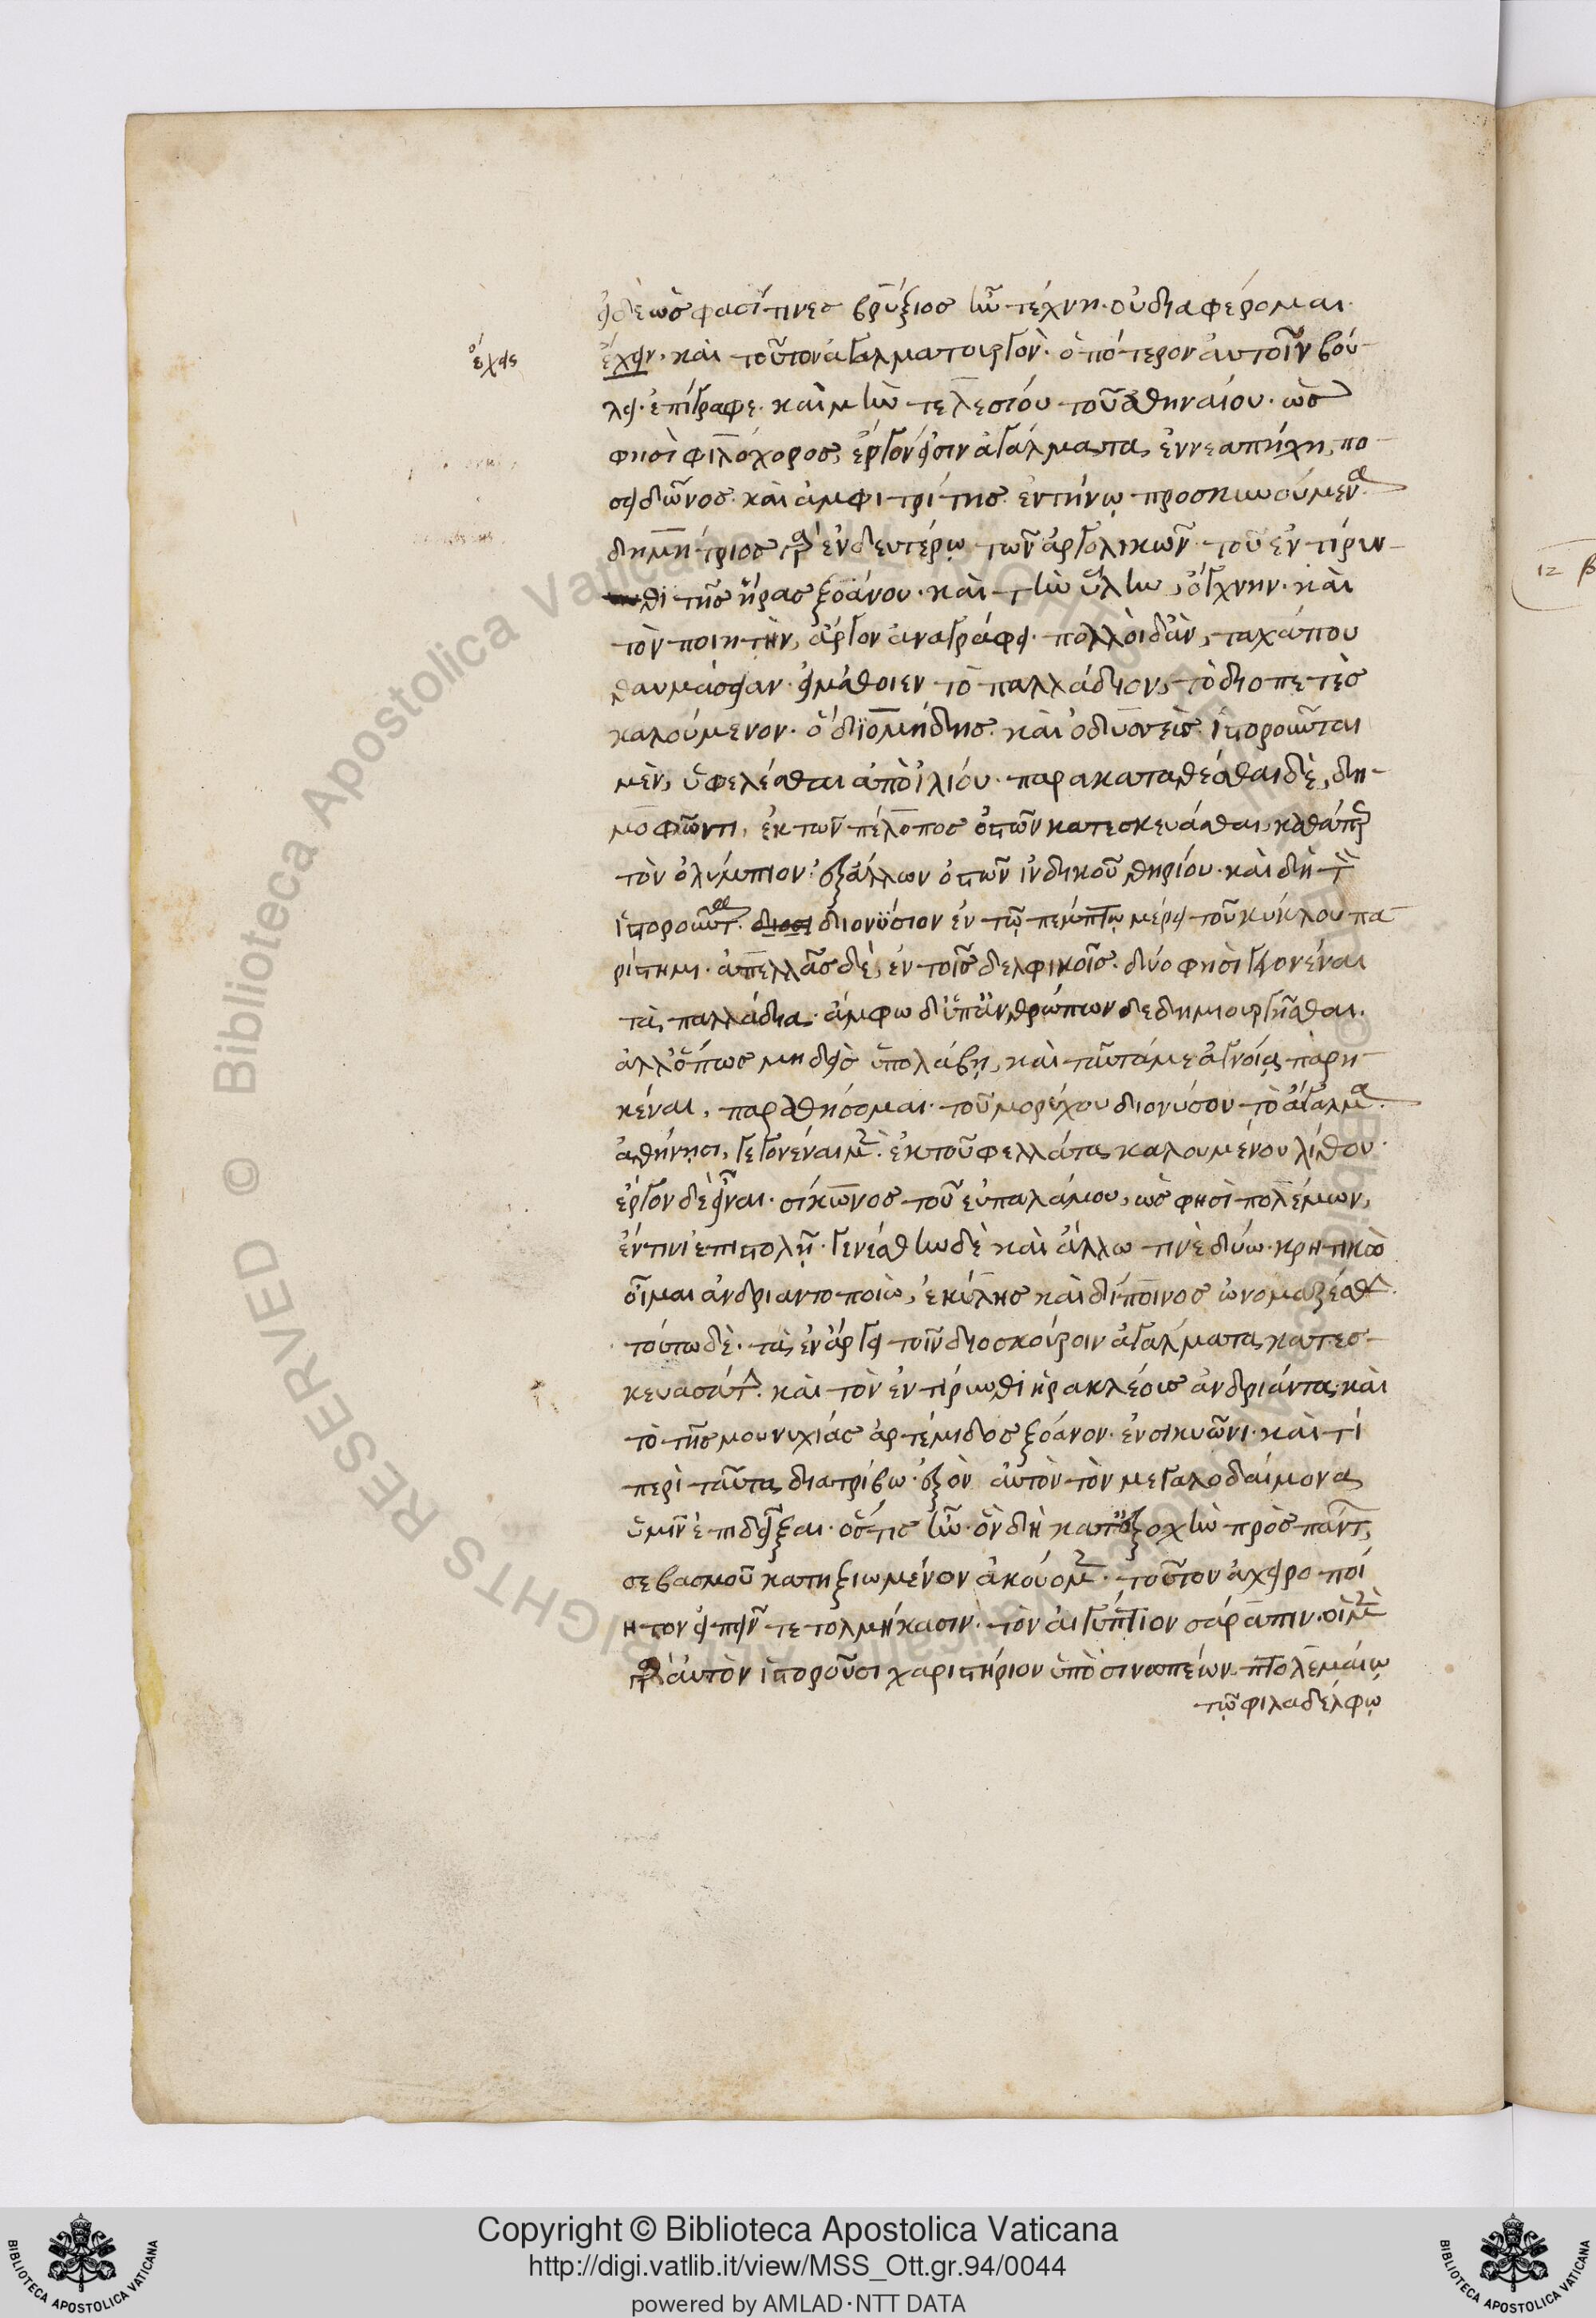 εἰ δὲ ὥς φασί τινες βρύξιος ἦν τέχνη. οὐ διαφέρομαι.
ἔχειν. καὶ τοῦτον ἀγαλματουργὸν. ὁπότερον αὐτοῖν βού-
λει ἐπίγραφε. καὶ μὴν τελεσίου τοῦ ἀθηναίου. ὥς
φησὶ φιλόχορος, ἔργον εἰσιν ἀγάλματα, ἐννεαπήχη, πο-
σειδῶνος. καὶ ἀμφιτρίτης. ἐν τήνῳ προσκυνούμενα
δημήτριος γὰρ ἐν δευτέρῳ τῶν ἀργολικῶν. τοῦ ἐν τίρυν-
θι τῆς ἥρας ξοάνου. καὶ τὴν ὕλην, ὄγχνην. καὶ
τὸν ποιητὴν, ἄργον ἀναγράφει. πολλοὶ δ' ἂν, τάχά που
θαυμάσειαν. εἰ μάθοιεν τὸ παλλάδιον, τὸ διοπετὲς
καλούμενον. ὃ διομήδης. καὶ ὀδυσσεὺς. ἱστοροῦνται
μὲν, ὑφελέσθαι ἀπὸ ἰλίου. παρακαταθέσθαι δὲ, δη-
μοφῶντι, ἐκ τῶν πέλοπος ὀστῶν κατεσκευάσθαι, καθάπερ
τὸν ὀλύμπιον. ἐξ ἄλλων ὀστῶν ἰνδικοῦ θηρίου. καὶ δὴ τὸν
ἱστοροῦντα. διονύσιον ἐν τῷ πέμπτῳ μέρει τοῦ κύκλου πα-
ρίστημι. ἀπελλᾶς δὲ, ἐν τοῖς δελφικοῖς. δύο φησὶ γεγονέναι
τὰ παλλάδια. ἄμφω δ' ὑπ' ἀνθρώπων δεδημιουργῆσθαι.
ἀλλ' ὅπως μηδεὶς ὑπολάβῃ, καὶ ταῦτά με ἀγνοίᾳ παρη-
κέναι, παραθήσομαι. τοῦ μορύχου διονύσου τὸ ἄγαλμα.
ἀθήνησι, γεγονέναι μὲν. ἐκ τοῦ φελλάτα καλουμένου λίθου.
ἔργον δὲ εἶναι. σίκωνος τοῦ εὐπαλάμου, ὥς φησὶ πολέμων,
ἔν τινι ἐπιστολῇ. γενέσθην δὲ καὶ ἄλλω τινὲ δύω. κρητικὼ
οἶμαι ἀνδριαντοποιὼ, σκύλης καὶ δίποινος ὠνομαζέσθην.
τούτω δὲ. τὰ ἐν ἄργει τοῖν διοσκούροιν ἀγάλματα κατεσ-
κευασάτην. καὶ τὸν ἐν τίρυνθι ἡρακλέους ἀνδριάντα καὶ
τὸ τῆς μουνυχίας ἀρτέμιδος ξόανον. ἐν σικυῶνι. καὶ τί
περὶ ταῦτα διατρίβω. ἐξὸν αὐτὸν τὸν μεγαλοδαίμονα
ὑμῖν ἐπιδεῖξαι. ὅστις ἦν. ὃν δὴ κατ' ἐξοχὴν πρὸς πάντων
σεβασμοῦ κατηξιωμένον ἀκούομεν. τοῦτον ἀχειροποί
ητον εἰπεῖν τετολμήκασιν. τὸν αἰγύπτιον σάραπιν. οἱ μὲν
γὰρ αὐτὸν ἱστοροῦσι χαριστήριον ὑπὸ σινωπέων. πτολεμαίῳ
τῷ φιλαδέλφῳ